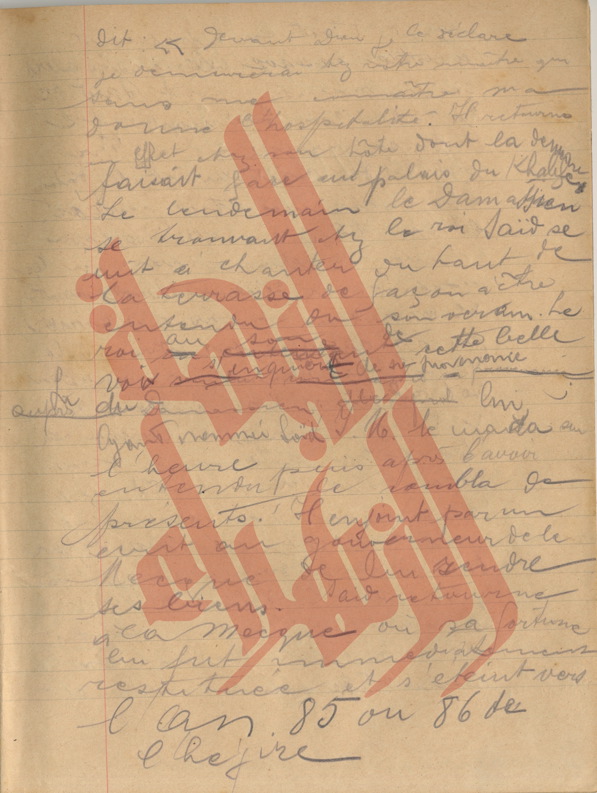 dit : « Devant Dieu je le déclare
je demeurerai chez votre ministre qui
sans me connaître m'a
donné l'hospitalité. Il retourna
en effet chez son hôte dont la demeure
faisait face au palais du Khalife.
Le lendemain le Damassien
se trouvant chez le roi Saïd se
mit à chanter du haut de
la terrasse de façon à être
entendu du souverain. Le
roi au son de cette belle
voix s'enquiert de sa provenance
auprès du Damassien
lui
ayant nommé Saïd. M. le manda sur
l'heure puis après l'avoir
entendu le combla de
présents. Il enjoint par un
écrit au gouverneur de la
Mecque de lui rendre
ses biens. Saïd retourne
à la Mecque où sa fortune
lui fut immédiatement
restituée et s'éteint vers
l'an 85 ou 86 de
l'hégire